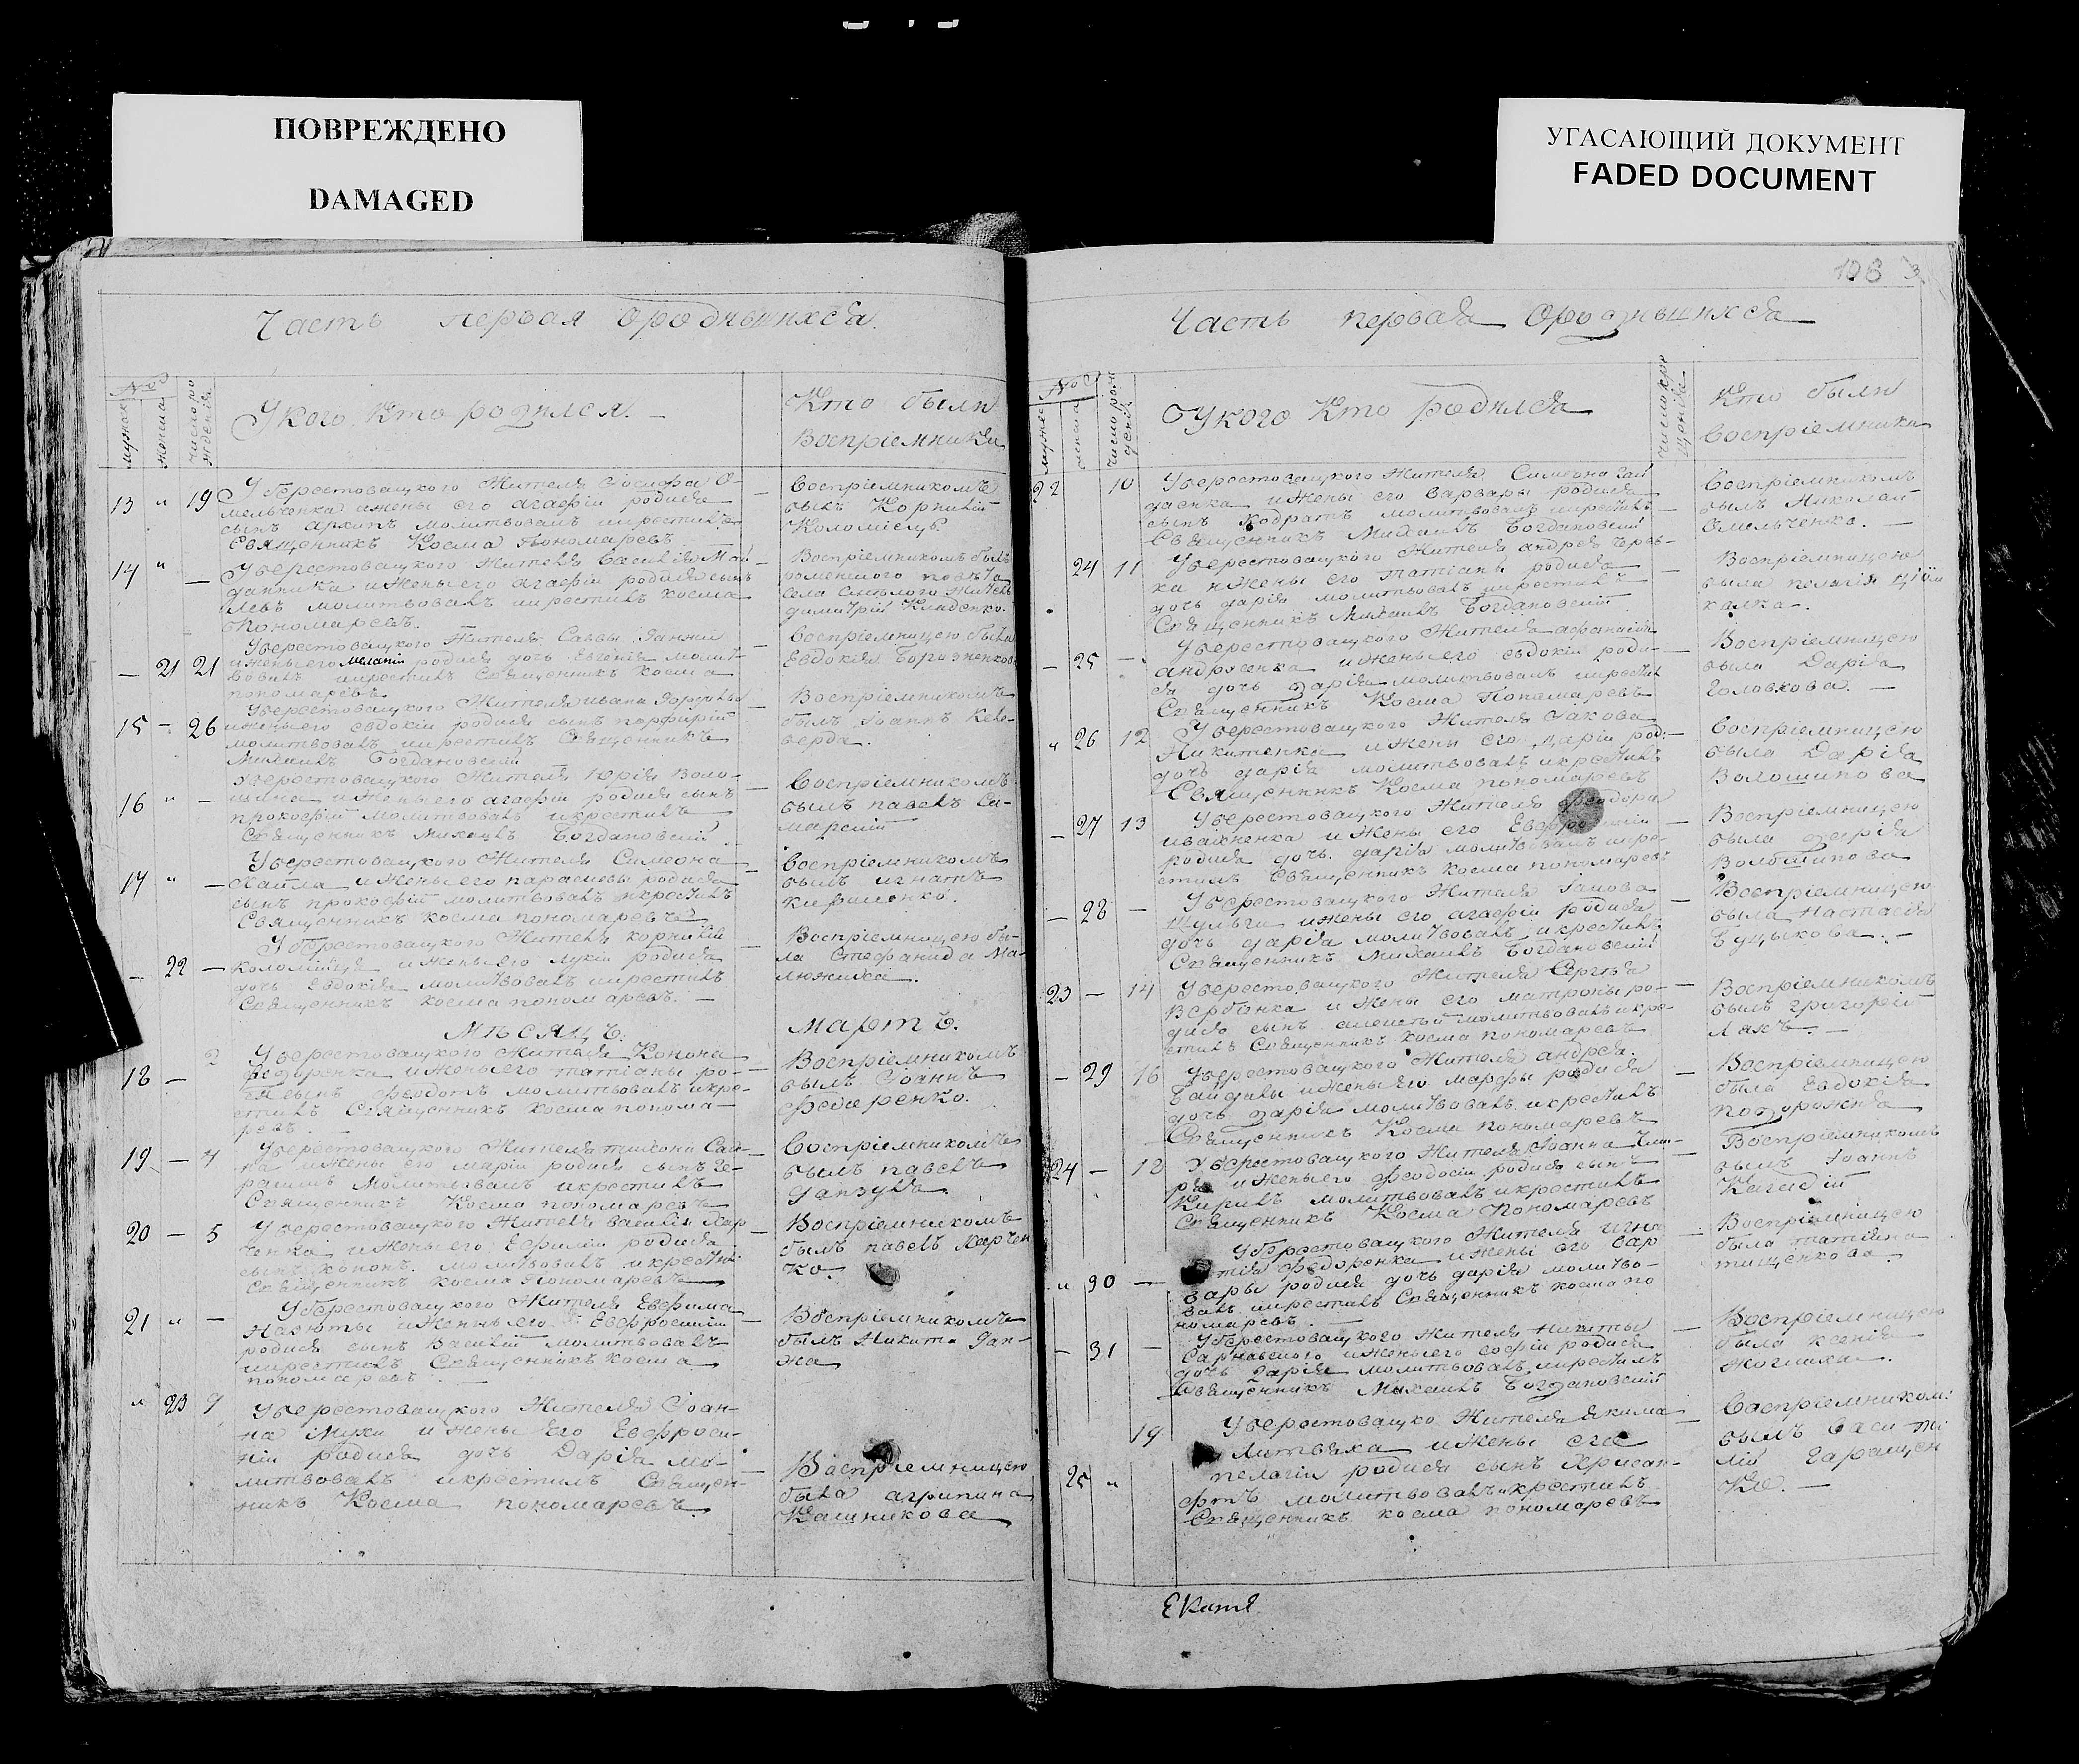 ПОВРЕЖДЕНО
DAMAGED
УГАСАЮЩИЙ ДОКУМЕНТ
FADED DOCUMENT
Часть первая ородившихся.
№
мужск
женска
число рождения
У кого кто родился.
Кто были
Воспріемники
13 " 19 Уберестовацкого Жителя Іосифа О-
мельченка ижены его агафіи родился
сынъ архипъ молитвовалъ икрестилъ
Священникъ Косма Пономаревъ
Воспріемникомъ
былъ Корнилій
Коломіецъ
14 " — Уберестовацкого Жителя Василія
иЖены его агафіи родился сынъ
Левъ молитвовалъ икрестилъ Косма
Пономаревъ.
Воспріемникомъ былъ
роменского повѣта
села житель
димитрій
— 21 21 Уберестовацкого Жителя Саввы Ганжи
иЖены его меланіи родися дочь Евгенія молит-
вовалъ икрестилъ Священникъ Косма
пономаревъ
Воспріемницею была
Евдокія
15 — 26 Уберестовацкого Жителя ивана
ижены его евдокіи родился сынъ порфирій
молитвовалъ икрестилъ Священникъ
Михаилъ Богдановскій
Воспріемникомъ
былъ Іоаннъ Keke-
верда.
16 " — Уберестовацкого Жителя Юрія Воло-
шина иЖены его агафіи родися сынъ
прокофій молитвовалъ икрестилъ
Священникъ Михаилъ Богдановскій
Воспріемникомъ
былъ павелъ Са-
марскій
17 " — Уберестовацкого Жителя Симеона
иЖены его параскевы родился
сынъ прокофій молитвовалъ икрестилъ
Священникъ косма пономаревъ
Воспріемникомъ
былъ игнатъ
— 22 — Уберестовацкого Жителя корнилія
коломійця иЖены его лукіи родися
дочь Евдокія молитвовалъ икрестилъ
Священникъ косма пономаревъ. —
Воспріемницею бы-
ла Стефанида Ма-
люжиха.
Мѣсяцъ:
мартъ.
18 — 2 Уберестовацкого Жителя Конона
Федоренка иЖены его татіаны ро-
сынъ Феодотъ молитвовалъ икре-
стилъ Священникъ косма понома-
ревъ.
Воспріемникомъ
былъ Іоаннъ
Федоренко.
19 — 4 Уберестовацкого Жителя
иЖены его маріи родися сынъ Ге-
расимъ молитвовалъ икрестилъ
Священникъ Косма пономаревъ
Воспріемникомъ
былъ павелъ
20 — 5 Уберестовацкого Жителя василія Хар-
ченка иЖены его Ефиміи родися
сынъ конон. молитвовалъ икрестил
Священникъ косма Пономаревъ
Воспріемникомъ
былъ павелъ Харчен
ко.
21 " — Уберестовацкого Жителя Евфима
иЖены его Евфросиніи
родися сынъ Василій молитвовалъ
икрестилъ Священникъ косма
пономаревъ.
Воспріемникомъ
былъ Никита Ган-
жа
" 23 7 Уберестовацкого Жителя Іоан-
на Мухи иЖены Его Евфроси-
ніи родися дочь Дарія мо-
литвовалъ икрестилъ Священ-
никъ Косма пономаревъ.
Воспріемницею
была агрипина
Кашникова
Часть первая Ородившихся
№
У кого Кто родился
Кто были
Воспріемники
22 10 Уберестовацкого Жителя Симеона Гай
даенка иЖены его варвары родился
сынъ Кодратъ молитвовалъ икрестилъ
Священникъ Михаилъ Богдановскій
Воспріемникомъ
былъ Николай
Омельченко. —
24 11 Уберестовацкого Жителя андрея
иЖены его татіаны родися
дочь дарія молитвовалъ икрестилъ
Священникъ Михаилъ Богдановскій
Воспріемницею
была пелагія
— 25 — Уберестовацкого Жителя афанасія
андреенка иЖены его евдокіи роди-
ся дочь дарія молитвовалъ икрестил
Священникъ Косма Пономаревъ
Воспріемницею
была Дарія
Головкова. —
" 26 12 Уберестовацкого Жителя Іакова
Никитенка иЖены его даріи род:
дочь дарія молитвовалъ икрестилъ
Священникъ Косма пономаревъ
Воспріемницею
была Дарія
Волошинова
— 27 13 Уберестовацкого Жителя Феодора
ивахненка иЖены его
родися дочь дарія молитвовалъ икре-
стилъ Священникъ косма пономаревъ
Воспріемницею
была дарія
Волошинова
— 28 — Уберестовацкого Жителя Іакова
Шульги иЖены его агафіи родися
дочь дарія молитвовалъ икрестилъ
Священникъ Михаилъ Богдановскій
Воспріемницею
была Настасія
Буцыкова. —
23 — 14 Уберестовацкого Жителя Сергѣя
Вербѣнка иЖены его матроны ро-
дися сынъ алексѣй молитвовалъ икре-
стилъ Священникъ косма пономаревъ
Воспріемникомъ
былъ григорій
Ляхъ. —
— 29 16 Уберестовацкого Жителя андрея
Гайдавы иЖены Его марфы родися
дочь дарія молитвовалъ икрестилъ
Священникъ Косма пономаревъ
Воспріемницею
была Евдокія
подорожня
24 — 18 Уберестовацкого Жителя Іоанна
иЖены его Феодосіи родися сынъ
Кирилъ молитвовалъ икрестилъ
Священникъ Косма Пономаревъ
Воспріемникомъ
былъ Іоаннъ
" 30 — Уберестовацкого Жителя игна
тія Федоренка иЖены его вар
вары родися дочь дарія молитво-
валъ икрестилъ Священникъ косма по
номаревъ. —
Воспріемницею
была татіяна
тищенкова
— 31 — Уберестовацкого Жителя Никиты
иЖены его софіи родися
дочь дарія молитвовалъ икрестилъ
Священникъ Михаилъ Богдановскій
Воспріемницею
была ксенія
25 " 19 Уберестовацко Жителя якима
Литвяка иЖены его
пелагіи родися сынъ Хрисан-
фтъ молитвовалъ икрестилъ
Священникъ косма пономаревъ
Воспріемником:
былъ Васи
лій Геращен
ко. —
Екатѣ